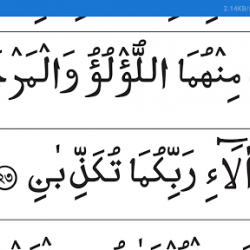 2.14KB/
مِنْهُمَا اللُّؤْلُؤُ وَالْمَرْجَ
اٰلَاۤءِ رَبِّكُمَا تُكَذِّبٰنِ